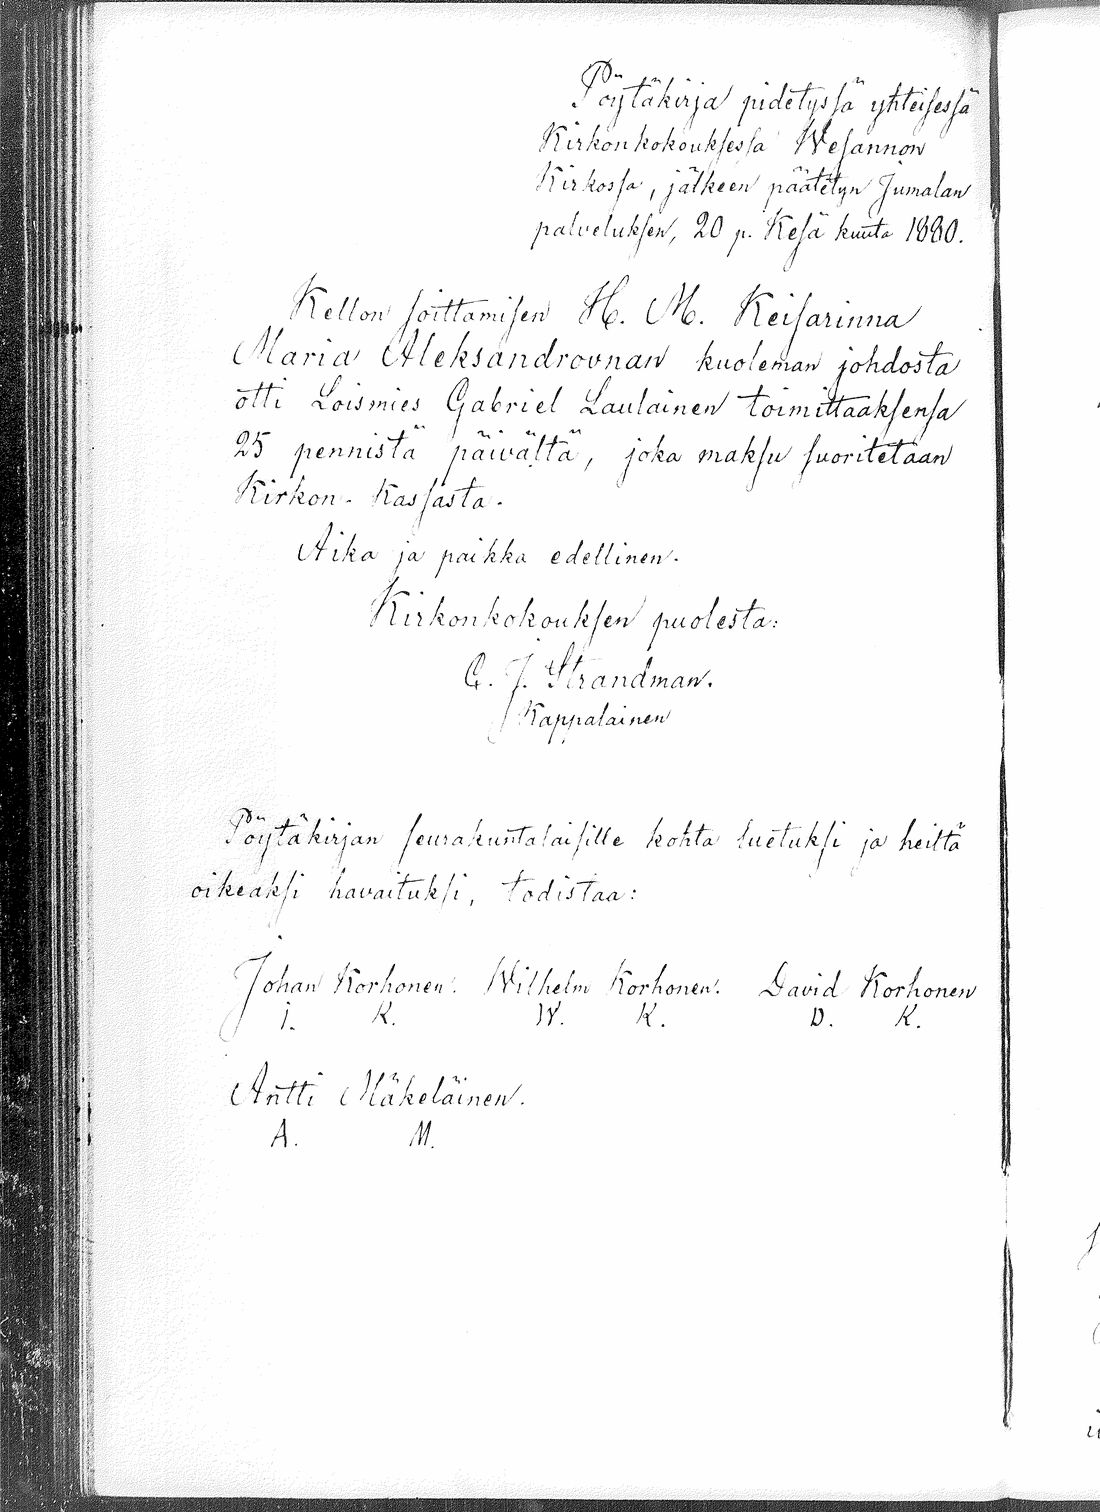 Pöytäkirja pidetyssä yhteisessä
Kirkonkokouksessa Wesannon
Kirkossa, jälkeen päätetyn Jumalan
palveluksen, 20 p. Kesä kuuta 1880.
Kellon soittamisen H. M. Keisarinna
Maria Aleksandrovnan kuoleman johdosta
otti Loismies Gabriel Laulainen toimittaaksensa
25 pennistä päivältä, joka maksu suoritetaan
Kirkon-Kassasta.
Aika ja paikka edellinen.
Kirkonkokouksen puolesta:
C. J. Strandman.
Kappalainen
Pöytäkirjan seurakuntalaisille kohta luetuksi ja heiltä
oikeaksi havaituksi, todistaa:
Johan Korhonen. Wilhelm Korhonen. David Korhonen
I. K. W. K. D. K.
Antti Mäkeläinen.
A. M.